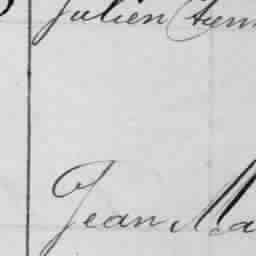 Julien
Jean Ma